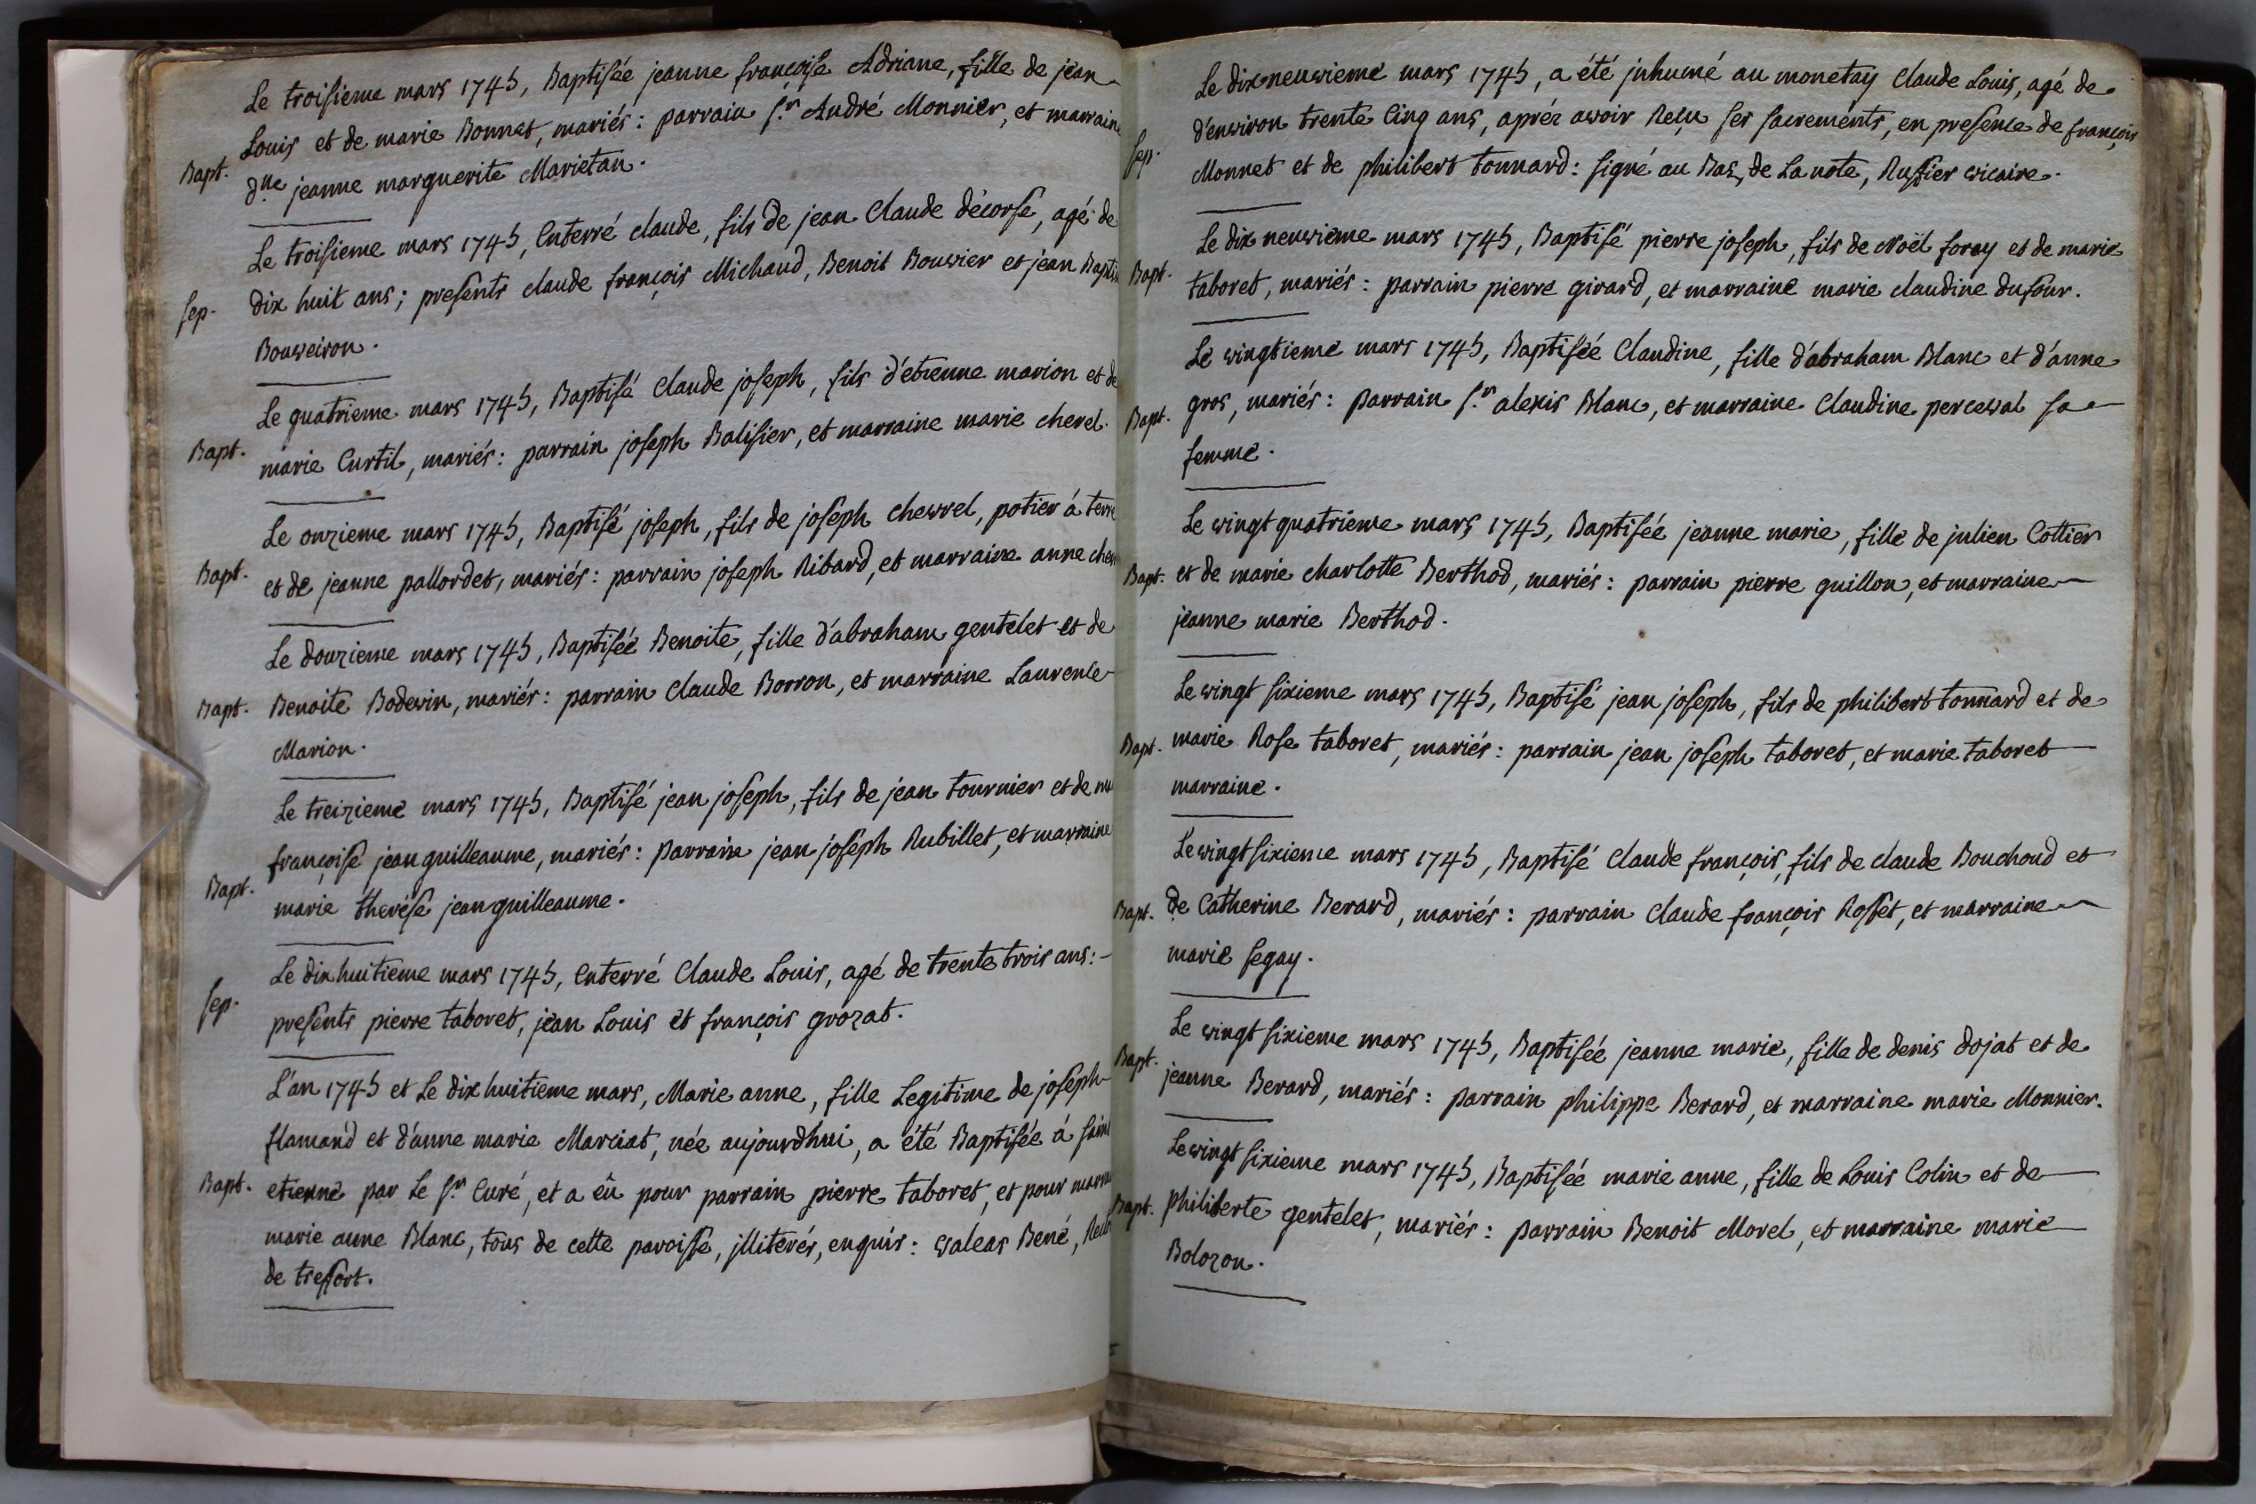 Le troisieme mars 1745, Baptisée jeanne françoise Adriane, fille de jean
Louis et de marie Bonnat, mariés : parrain s.r André Monnier, et marraine
Bapt.
d.lle jeanne marguerite Marietan.
Le troisieme mars 1745, Enterré claude, fils de jean Claude décorse, agé de
Sep. dix huit ans ; presents claude françois Michaud, Benoit Bouvier et jean
Bouveiron.
Le quatrieme mars 1745, Baptisé Claude joseph, fils d'étienne marion et de
Bapt. marie Curtil, mariés : parrain joseph Balisier, et marraine marie chevel.
Le onzieme mars 1745, Baptisé joseph, fils de joseph chevrel, potier á terre
Bapt. et de jeanne pallordet, mariés : parrain joseph Ribard, et marraine anne
Le douzieme mars 1745, Baptisée Benoite, fille d'abraham gentelet et de
Bapt. Benoite Bodevin, mariés : parrain Claude Borron, et marraine Laurence
Marion.
Le treizieme mars 1745, Baptisé jean joseph, fils de jean tournier et de
françoise jeanguilleaume, mariés : parrain jean joseph Rubillet, et marraine
Bapt. marie therése jeanguilleaume.
Le dixhuitieme mars 1745, Enterré Claude Louis, agé de trente trois ans :
Sep. presents pierre taboret, jean Louis et françois grozat.
L'an 1745 et Le dixhuitieme mars, Marie anne, fille Legitime de joseph
flamand et d'anne marie Marciat, née aujourdhui, a été Baptisée á saint
Bapt. etienne par Le s.r Curé, et a eû pour parrain pierre taboret, et pour
marie anne Blanc, tous de cette paroisse, jlliterés, enquis : valeas Bené,
de treffort.
Le dixneuvieme mars 1745, a été jnhumé au monetay Claude Louis, agé de
d'environ trente Cinq ans, aprés avoir Reçu ses sacrements, en presence de françois
Sep.
Monnet et de philibert tonnard : signé au Bas de La note, Ruffier vicaire.
Le dix neuvieme mars 1745, Baptisé pierre joseph, fils de Noël foray et de marie
Bapt. taboret, mariés : parrain pierre girard, et marraine marie claudine dufour.
Le vingtieme mars 1745, Baptisée Claudine, fille d'abraham Blanc et d'anne
Bapt. gros, mariés : parrain s.r alexis Blanc, et marraine Claudine perceval sa
femme.
Le vingt quatrieme mars 1745, Baptisée jeanne marie, fille de julien Cottier
Bapt. et de marie charlotte Berthod, mariés : parrain pierre guillon, et marraine
jeanne marie Berthod.
Le vingt sixieme mars 1745, Baptisé jean joseph, fils de philibert tonnard et de
Bapt. marie Rose taboret, mariés : parrain jean joseph taboret, et marie taboret
marraine.
Le vingt sixieme mars 1745, Baptisé Claude françois, fils de claude Bouchoud et
Bapt. de Catherine Berard, mariés : parrain Claude françois Rosset, et marraine
marie segay.
Le vingt sixieme mars 1745, Baptisée jeanne marie, fille de denis dojat et de
Bapt. jeanne Berard, mariés : parrain philippe Berard, et marraine marie Monnier.
Le vingt sixieme mars 1745, Baptisée marie anne, fille de Louis Colin et de
Bapt. philiberte gentelet, mariés : parrain Benoit Morel, et marraine marie
Bolozon.